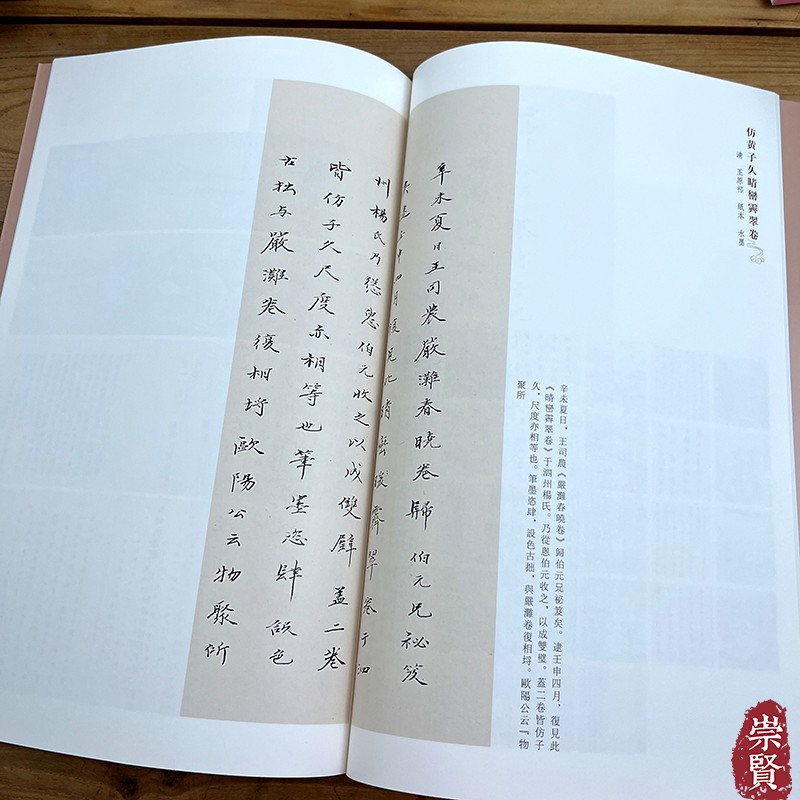 仿黄子久晴巒霽翠卷
清 王原祁 紙本 水墨
辛未夏日,王司農《嚴灘春曉卷》歸伯元兄祕笈矣。逮壬申四月,復見此
《晴巒霽翠卷》于泗州楊氏。乃從恿伯元收之,以成雙璧。蓋二卷皆仿子
久,尺度亦相等也。筆墨恣肆,設色古拙,與嚴灘卷復相埒。歐陽公云「物
聚所
辛未夏日王司農嚴灘春曉卷歸伯元兄祕笈
壬申四月復見此晴巒霽翠卷于泗
州楊氏乃慫恿伯元收之以成雙璧蓋二卷
皆仿子久尺度亦相等也筆墨恣肆設色
古拙与嚴灘卷復相埒歐陽公云物聚所
崇賢